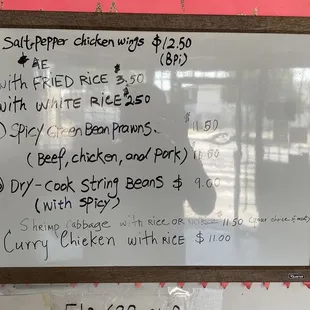 Salt-Pepper chicken wings $12.50
(8Pi)
with FRIED RICE $3.50
with WHITE RICE $2.50
) Spicy Green Bean Prawns. $11.50
(Beef, chicken, and Pork) 11.00
) Dry-Cook String Beans $ 9.00
(with Spicy)
Shrimp Cabbage with RICE OR 11.50
Curry Chicken with RICE $11.00